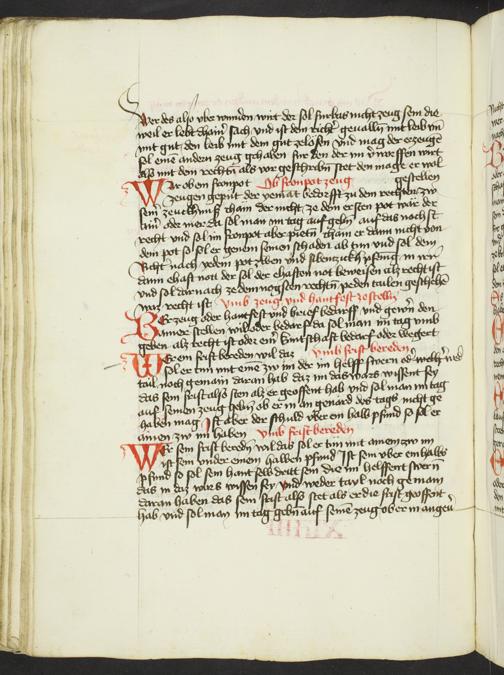 Wer des also vber wunden wirt der sol furbas nicht zeug sein die
weil er lebt chain sach vnd ist dem richter geuallen mit leib vnd
mit gut den leib mit dem gut zelösen vnd mag der erzeugen
sol einen andern zeug gehaben fur den der im verworffen wirt
also mit dem rechten als vor geschriben stet den mag er wol
War ob em fronpot Ob fronpot zeug gestellen
zeugen geput der yemant bedorfft zu dem rechten zw
sein zeuchnuß chain der nicht ze dem ersten pot war der
ain oder mer da sol man im tag auf geben auf das nachst
recht vnd sol im fronpot aber pieten chain er dann nicht von
dem pot so sol er genen seinen schaden ab tun vnd sol dem
Richter nach yedem pot geben vnd sibenzich pfenig in irn
dann ehaft not der sol der ehaften not beweisen als recht ist
vnd sol darnach ze dem nagsten rechten peden tailen geschehen
waz recht ist Vmb zeug vnd hantfest zestellen
Der zeug oder hantfest vnd brief bedarff vnd gewern den
ainer stellen wil oder bedarf da sol man im tag vmb
geben als recht ist oder ein kuntschaft bedarf oder wegert
Wer ein frist bereden wil daz vmb frist bereden
sol er tun mit eine zw im der im helff swern
tail noch gemain daran hab daz im das wars wissent sey
das sein frist also sten als er geoffent hab vnd sol man im tag
auf seinen zeug geben ob er in an genard des tags nicht ge
haben mag Ist aber der schuld vber ein halb pfund so sol er
ainen zw im haben vmb frist bereden
Wer sein frist bereden wil das sol er tun mit ainem zw im
ist sein vnder einem halben pfund Ist sein vber ein halbs
pfund so sol sein hant selb dritt sein die im helffent swern
das in daz wars wissen sey vnd weder tayl noch gemain
daran haben das sein frist also stet als er die frist geoffent
hab vnd sol man im tag geben auf seine zeug ob er in angeu